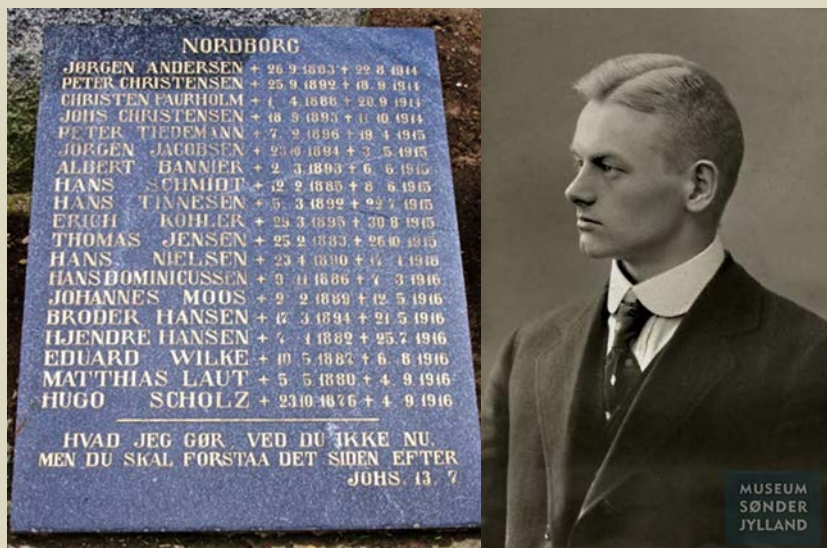 NORDBORG
JØRGEN ANDERSEN + 26 9 1883 + 22 8 1914
PETER CHRISTENSEN + 25 9 1892 + 18 9 1914
CHRISTEN FAURHOLM + 1 4 1888 + 20 9 1914
JOHS CHRISTENSEN + 18 9 1893 + 11 10 1914
PETER TIEDEMANN + 7 2 1896 + 19 4 1915
JØRGEN JACOBSEN + 23 10 1894 + 3 5 1915
ALBERT BANNIER + 2 3 1893 + 6 6 1915
HANS SCHMIDT + 12 2 1885 + 8 6 1915
HANS TINNESEN + 5 3 1892 + 22 7 1915
ERICH KOHLER + 29 3 1895 + 30 8 1915
THOMAS JENSEN + 25 2 1883 + 26 10 1915
HANS NIELSEN + 23 4 1890 + 17 1 1916
HANS DOMINICUSSEN + 9 11 1886 + 7 3 1916
JOHANNES MOOS + 2 2 1889 + 12 5 1916
BRODER HANSEN + 17 3 1894 + 21 5 1916
HJENDRE HANSEN + 7 1 1882 + 25 7 1916
EDUARD WILKE + 10 5 1887 + 6 8 1916
MATTHIAS LAUT + 5 5 1880 + 4 9 1916
HUGO SCHOLZ + 23 10 1876 + 4 9 1916
HVAD JEG GØR, VED DU IKKE NU,
MEN DU SKAL FORSTAA DET SIDEN EFTER
JOHS. 13. 7
MUSEUM
SØNDER
JYLLAND